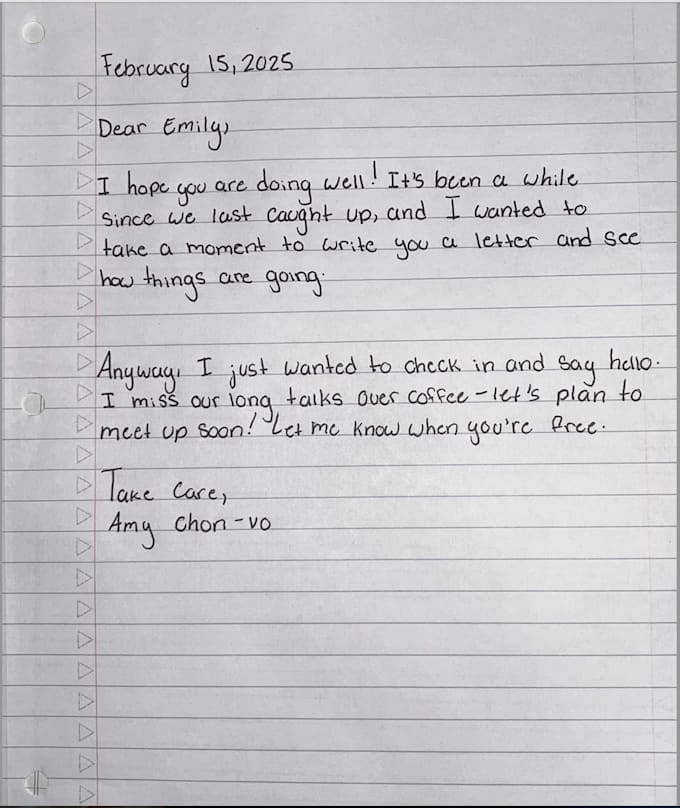 February 15, 2025
Dear Emily,
I hope you are doing well! It's been a while
since we last caught up, and I wanted to
take a moment to write you a letter and see
how things are going.
Anyway, I just wanted to check in and say hello.
I miss our long talks over coffee - let's plan to
meet up soon! Let me know when you're free.
Take Care,
Amy Chon-vo